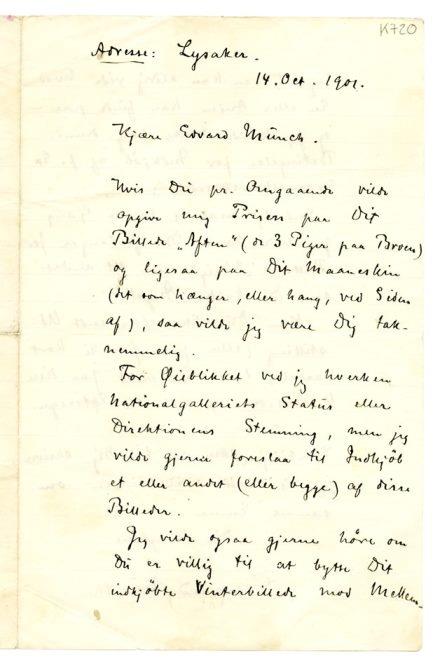 K720
Adresse: Lysaker.
14. Oct. 1901.
Kjære Edvard Münch.
Hvis Du pr. Omgaaende vilde
opgive mig Prisen paa Dit
Billede „Aften" (de 3 Piger paa Broen)
og ligesaa paa Dit Maaneskin
(det som hænger, eller hang, ved Siden
af), saa vilde jeg være Dig tak-
nemmelig.
For Øieblikket ved jeg hverken
Nationalgalleriets Status eller
Direktionens Stemning, men jeg
vilde gjerne foreslaa til Indkjøb
et eller andet (eller begge) af disse
Billeder.
Jeg vilde ogsaa gjerne höre om
Du er villig til at bytte Dit
indkjöbte Vinterbillede mod Mellem-